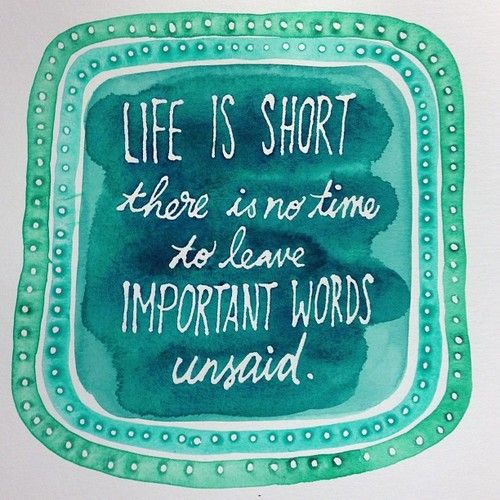 LIFE IS SHORT
there is no time
to leave
IMPORTANT WORDS
unsaid.